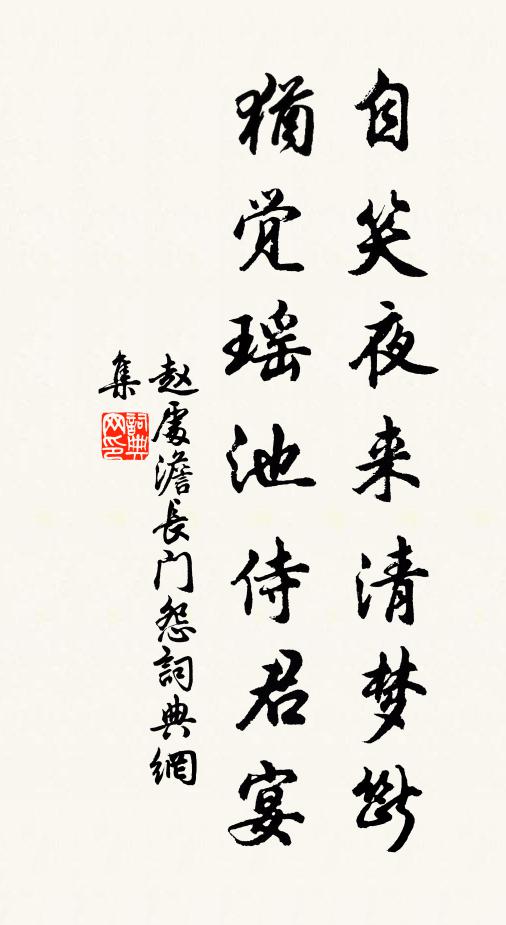 自笑夜来清梦断
犹觉瑶池侍君宴
赵處澹長门怨詞典網
集
詞典网印